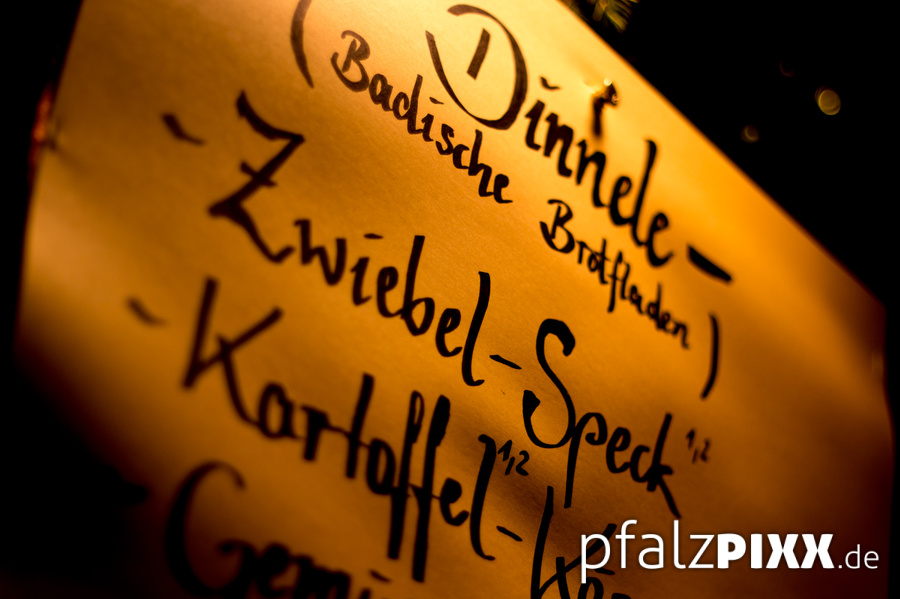 Dinnele -
(Badische Brotfladen)
- Zwiebel-Speck 1,2
- Kartoffel 1,2 -
pfalzPIXX.de